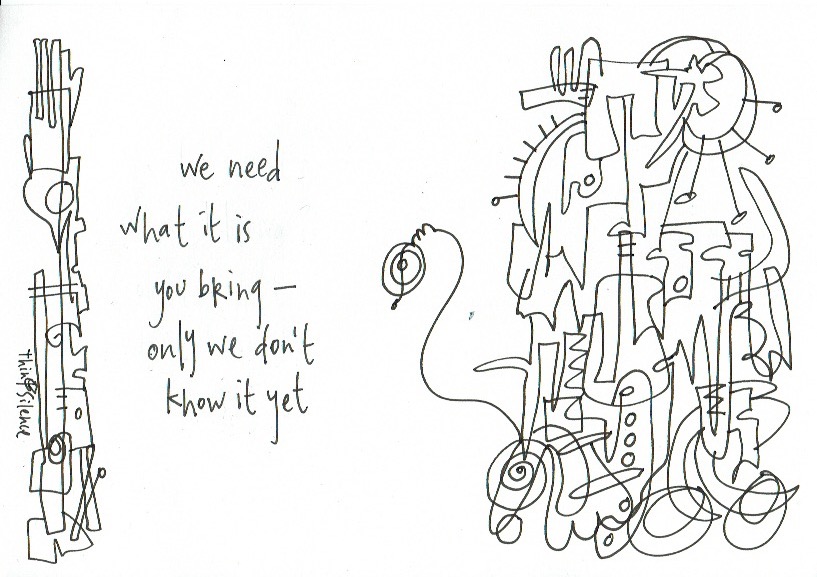 we need
what it is
you bring –
only we don't
know it yet
think silence